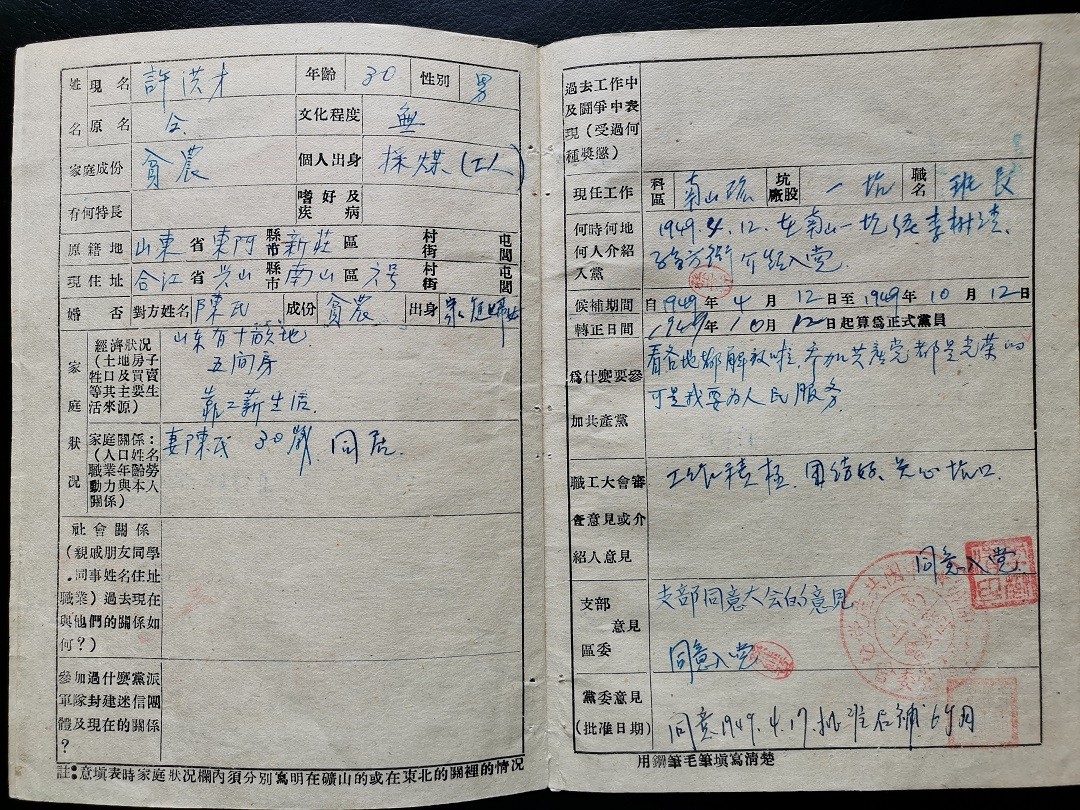 姓名 現名 許洪才 年齡 30 性別 男
原名 仝 文化程度 無
家庭成份 貧農 個人出身 採煤(工人)
有何特長 嗜好及疾病
原籍地 山東省東阿縣市新莊區 村街 屯閭
現住址 合江省兴山縣市南山區六号 村街 屯閭
婚否 對方姓名 陳氏 成份 貧農 出身 家庭婦女
家庭狀況
經濟狀況 山东有十亩地
(土地房子 五间房
牲口及買賣
等其主要生
活來源) 靠工薪生活.
家庭關係: 妻陳氏 30歲 同居.
(人口姓名
職業年齡勞
動力與本人
關係)
社會關係
(親戚朋友同學
.同事姓名住址
職業)過去現在
與他們的關係如
何?)
參加過什麼黨派
軍隊封建迷信團
體及現在的關係
?
註:意填表時家庭狀况欄內須分別寫明在礦山的或在東北的關裡的情况
過去工作中
及鬪爭中表
現(受過何
種奬懲)
現任工作 科區 南山 坑廠股 一坑 職名 班長
何時何地 1949.4.12.在南山一坑 李树
何人介紹 介绍入党.
入黨
候補期間 自1949年4月12日至1949年10月12日
轉正日間 1949年10月12日起算爲正式黨員
爲什麼要參加共產黨
看各地都解放啦.参加共产党都是光荣的
可是我要为人民服务
職工大會審 工作積極.团结好.关心坑口.
查意見或介
紹人意見 同意入党.
支部意見 支部同意大会的意見
區委 同意入党
黨委意見
(批准日期) 同意1949.4.17.批准后補6个月
用鋼筆毛筆填寫清楚